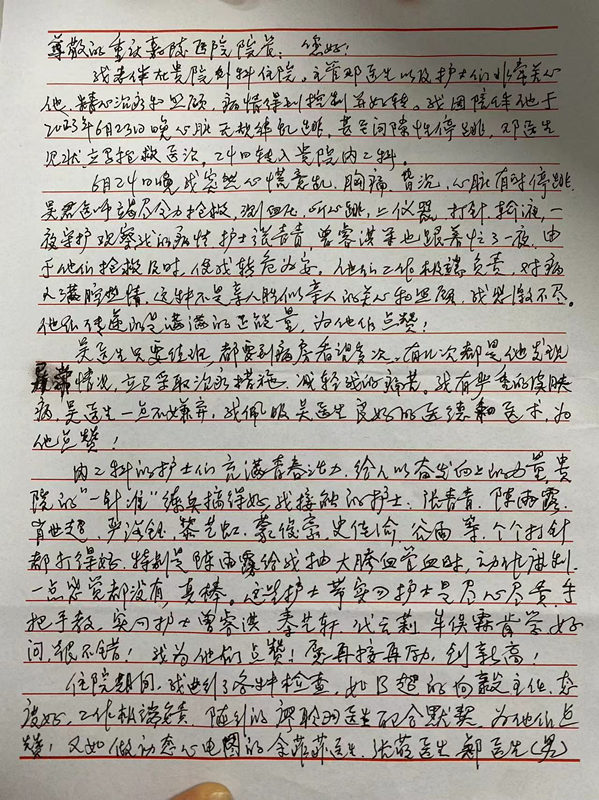 尊敬的重庆嘉陵医院院长：您好！
我老伴在贵院外科住院，主管邓医生以及护士们非常关心
他，精心治疗和照顾，病情得到控制并好转。我因陪伴他于
2023年6月23日晚心脏无规律乱跳，甚至间隙性停跳，邓医生
见状立马抢救医治，24日转入贵院内二科。
6月24日晚我突然心慌意乱，胸痛，昏沉，心脏有时停跳，
吴君医师竭尽全力抢救，测血压，听心跳，上仪器，打针，输液，一
夜守护观察我的病情，护士张青青，曾容洪等也跟着忙了一夜，由
于他们抢救及时，使我转危为安，他们工作极端负责，对病
人满腔热情，这种不是亲人胜似亲人的关心和照顾，我感激不尽。
他们传递的是满满的正能量，为他们点赞！
吴医生只要值班，都要到病房看望多次，有几次都是他发现
异常情况，立马采取治疗措施，减轻我的痛苦。我有严重的皮肤
病，吴医生一点不嫌弃，我佩服吴医生良好的医德和医术，为
他点赞！
内二科的护士们充满青春活力，给人以奋发向上的力量，贵
院的"一针准"练兵搞得好，我接触的护士：张青青，陈雨露，
肖世超，严，黎艺虹，蒙俊豪，史佳，谷雨等，个个打针
都打得好，特别是陈雨露给我抽大胯血管血时，动作麻利，
一点感觉都没有，真棒。这些护士带实习护士是尽心尽责，手
把手教，实习护士曾容洪，秦艺轩，代云莉，年俣霖肯学好
问，很不错！我为他们点赞！愿再接再励，创新高！
住院期间，我进行了各种检查，如B超的向毅主任，态
度好，工作极端负责，随行的廖聆羽医生配合默契，为他们点
赞！又如做动态心电图的余菲菲医生，张萌医生，郑医生(男)